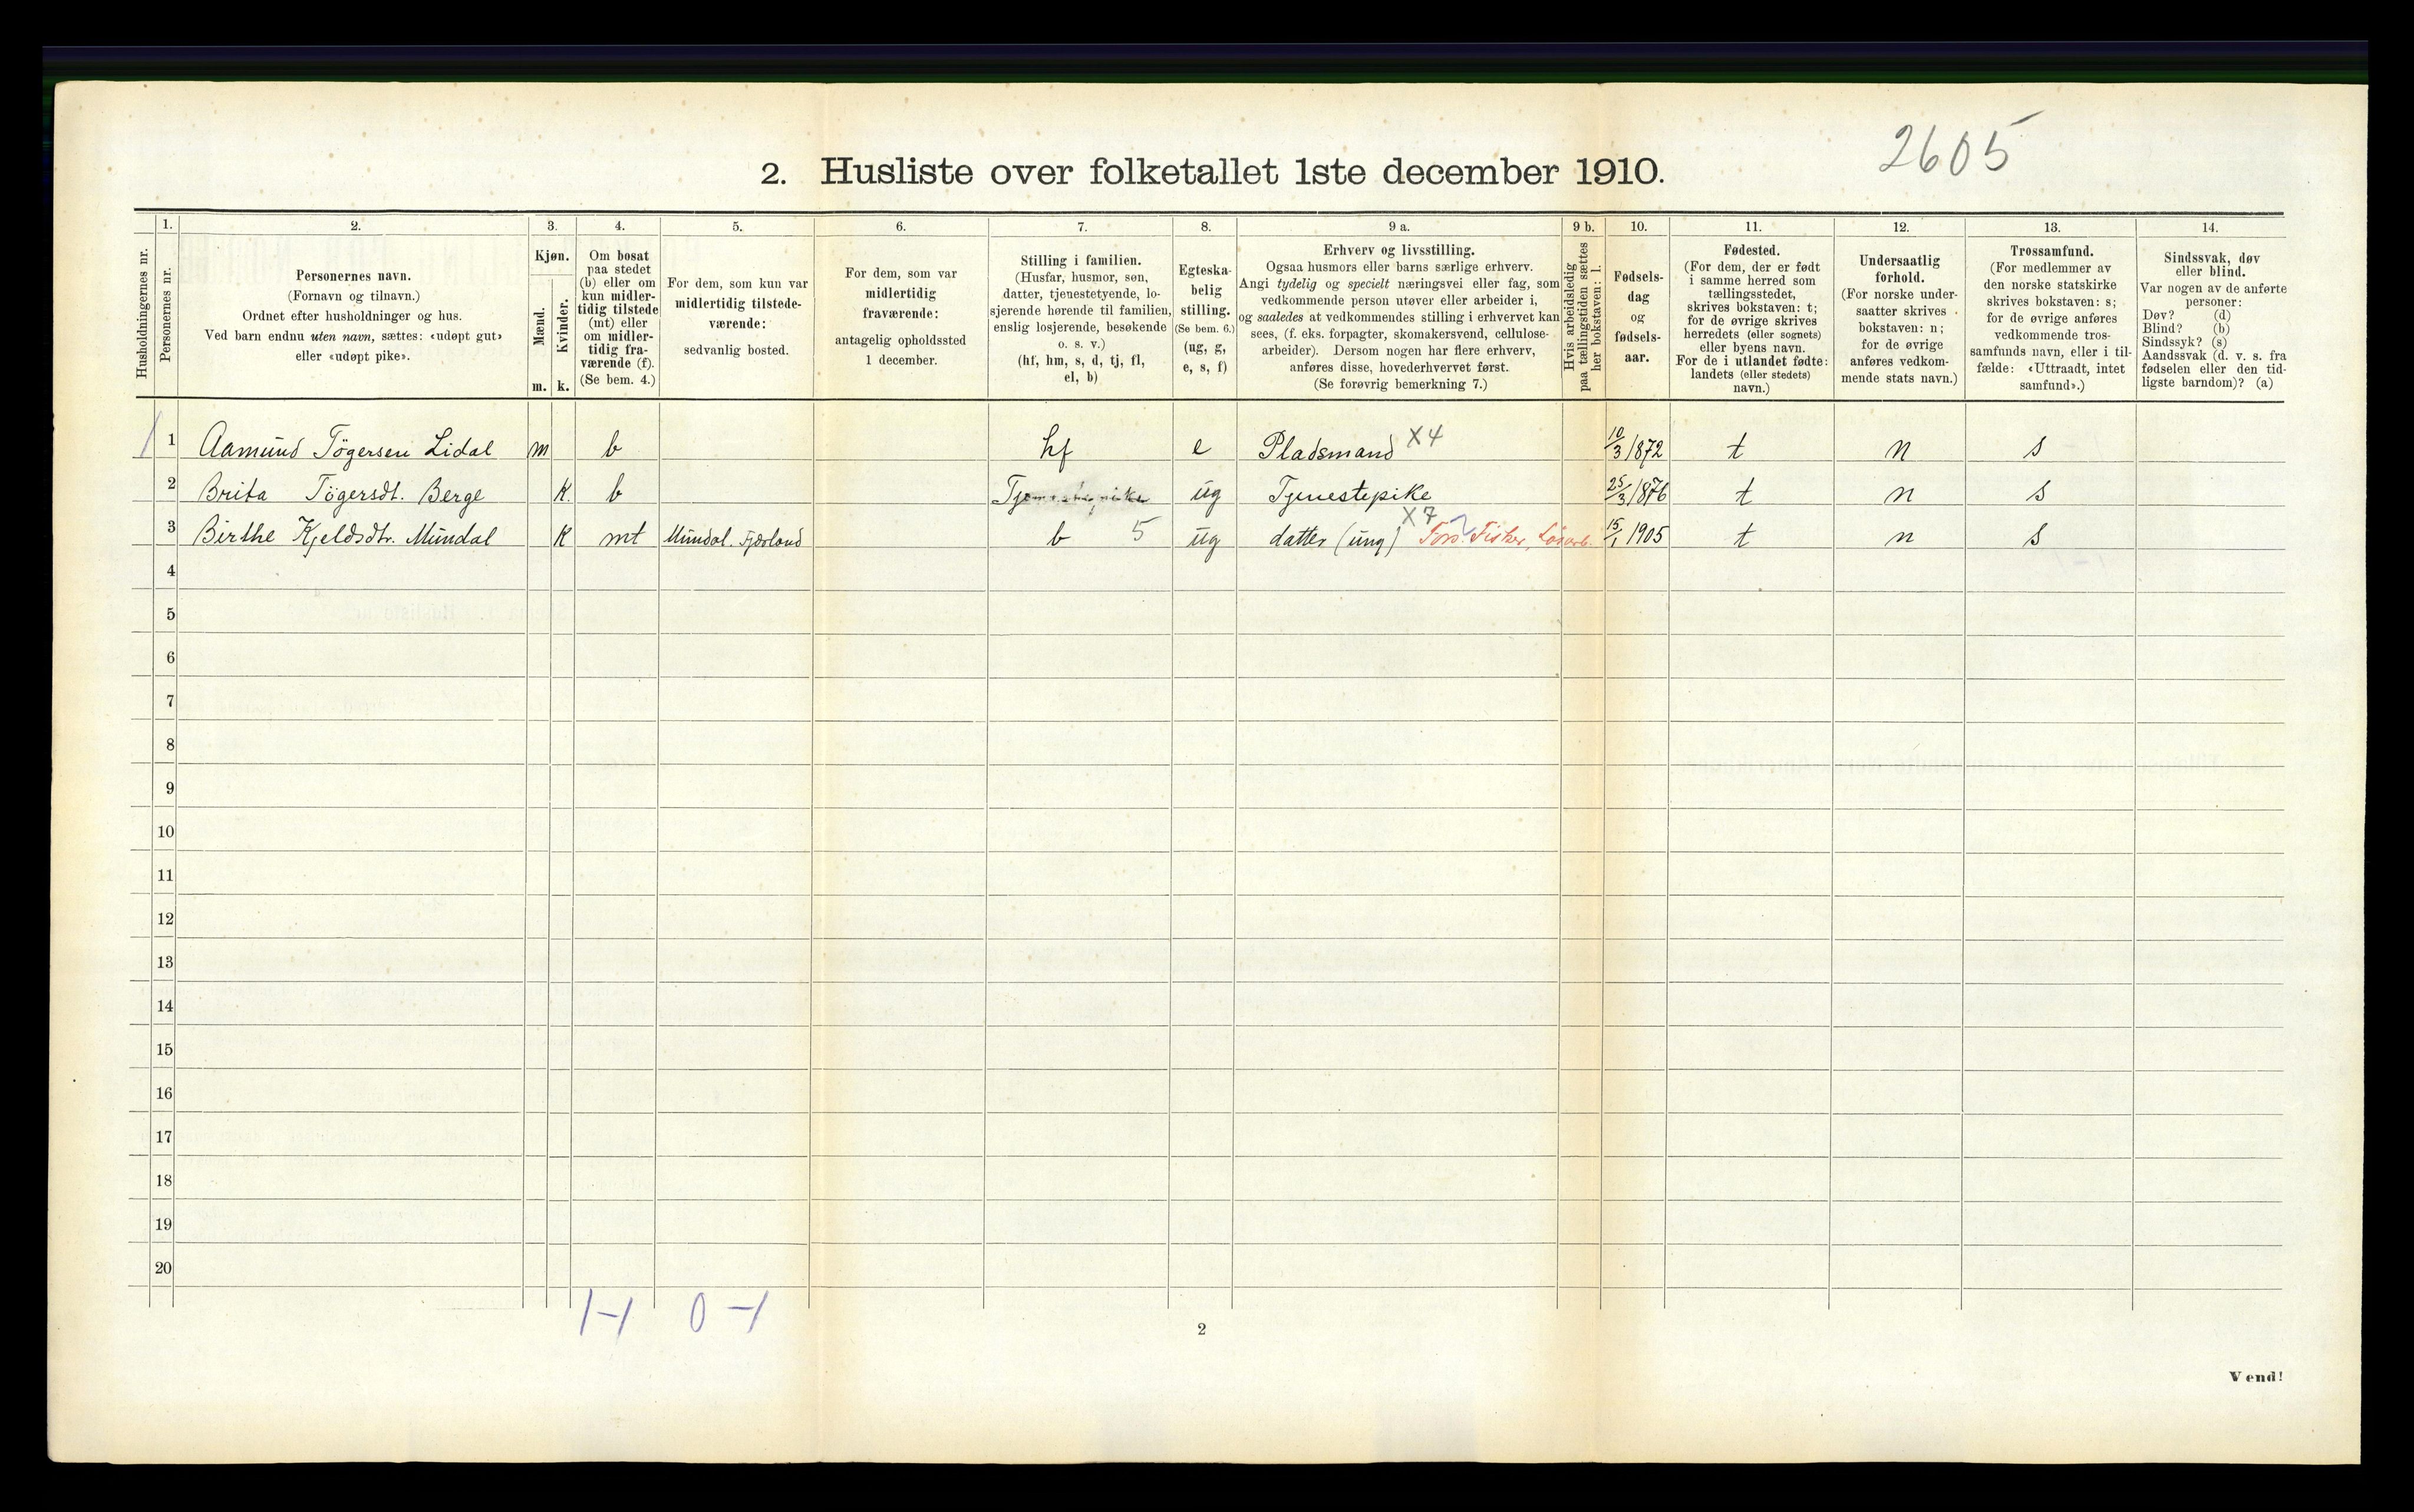 2605
2. Husliste over folketallet 1ste december 1910.
Husholdningernes nr.
1. Personernes nr.
2. Personernes navn.
(Fornavn og tilnavn.)
Ordnet efter husholdninger og hus.
Ved barn endnu uten navn, sættes: «udøpt gut»
eller «udøpt pike».
3. Kjøn.
Mænd. m.
Kvinder. k.
4. Om bosat
paa stedet
(b) eller om
kun midler-
tidig tilstede
(mt) eller
om midler-
tidig fra-
værende (f).
(Se bem. 4.)
5. For dem, som kun var
midlertidig tilstede-
værende:
sedvanlig bosted.
6. For dem, som var
midlertidig
fraværende:
antagelig opholdssted
1 december.
7. Stilling i familien.
(Husfar, husmor, søn,
datter, tjenestetyende, lo-
sjerende hørende til familien,
enslig losjerende, besøkende
o. s. v.)
(hf, hm, s, d, tj, fl,
el, b)
8. Egteska-
belig
stilling.
(Se bem. 6.)
(ug, g,
e, s, f)
9 a. Erhverv og livsstilling.
Ogsaa husmors eller barns særlige erhverv.
Angi tydelig og specielt næringsvei eller fag, som
vedkommende person utøver eller arbeider i,
og saaledes at vedkommendes stilling i erhvervet kan
sees, (f. eks. forpagter, skomakersvend, cellulose-
arbeider). Dersom nogen har flere erhverv,
anføres disse, hovederhvervet først.
(Se forøvrig bemerkning 7.)
9 b. Hvis arbeidsledig
paa tællingstiden sættes
her bokstaven: l.
10. Fødsels-
dag
og
fødsels-
aar.
11. Fødested.
(For dem, der er født
i samme herred som
tællingsstedet,
skrives bokstaven: t;
for de øvrige skrives
herredets (eller sognets)
eller byens navn.
For de i utlandet fødte:
landets (eller stedets)
navn.)
12. Undersaatlig
forhold.
(For norske under-
saatter skrives
bokstaven: n;
for de øvrige
anføres vedkom-
mende stats navn.)
13. Trossamfund.
(For medlemmer av
den norske statskirke
skrives bokstaven: s;
for de øvrige anføres
vedkommende tros-
samfunds navn, eller i til-
fælde: «Uttraadt, intet
samfund».)
14. Sindssvak, døv
eller blind.
Var nogen av de anførte
personer:
Døv? (d)
Blind? (b)
Sindssyk? (s)
Aandssvak (d. v. s. fra
fødselen eller den tid-
ligste barndom)? (a)
1 1 Aamund Tøgersen Lidal m b hf e Pladsmand X4 10/3 1872 t n s
2 Brita Tøgersdt. Berge K. b Tjenestepike ug Tjenestepike 25/3 1876 t n s
3 Birthe Kjeldsdtr. Mundal K mt Mundal. Fjærland b 5 ug datter (ung) X7 Fors: Fisker, Løsarb. 15/1 1905 t n s
4
5
6
7
8
9
10
11
12
13
14
15
16
17
18
19
20
1-1 0-1
2
Vend!